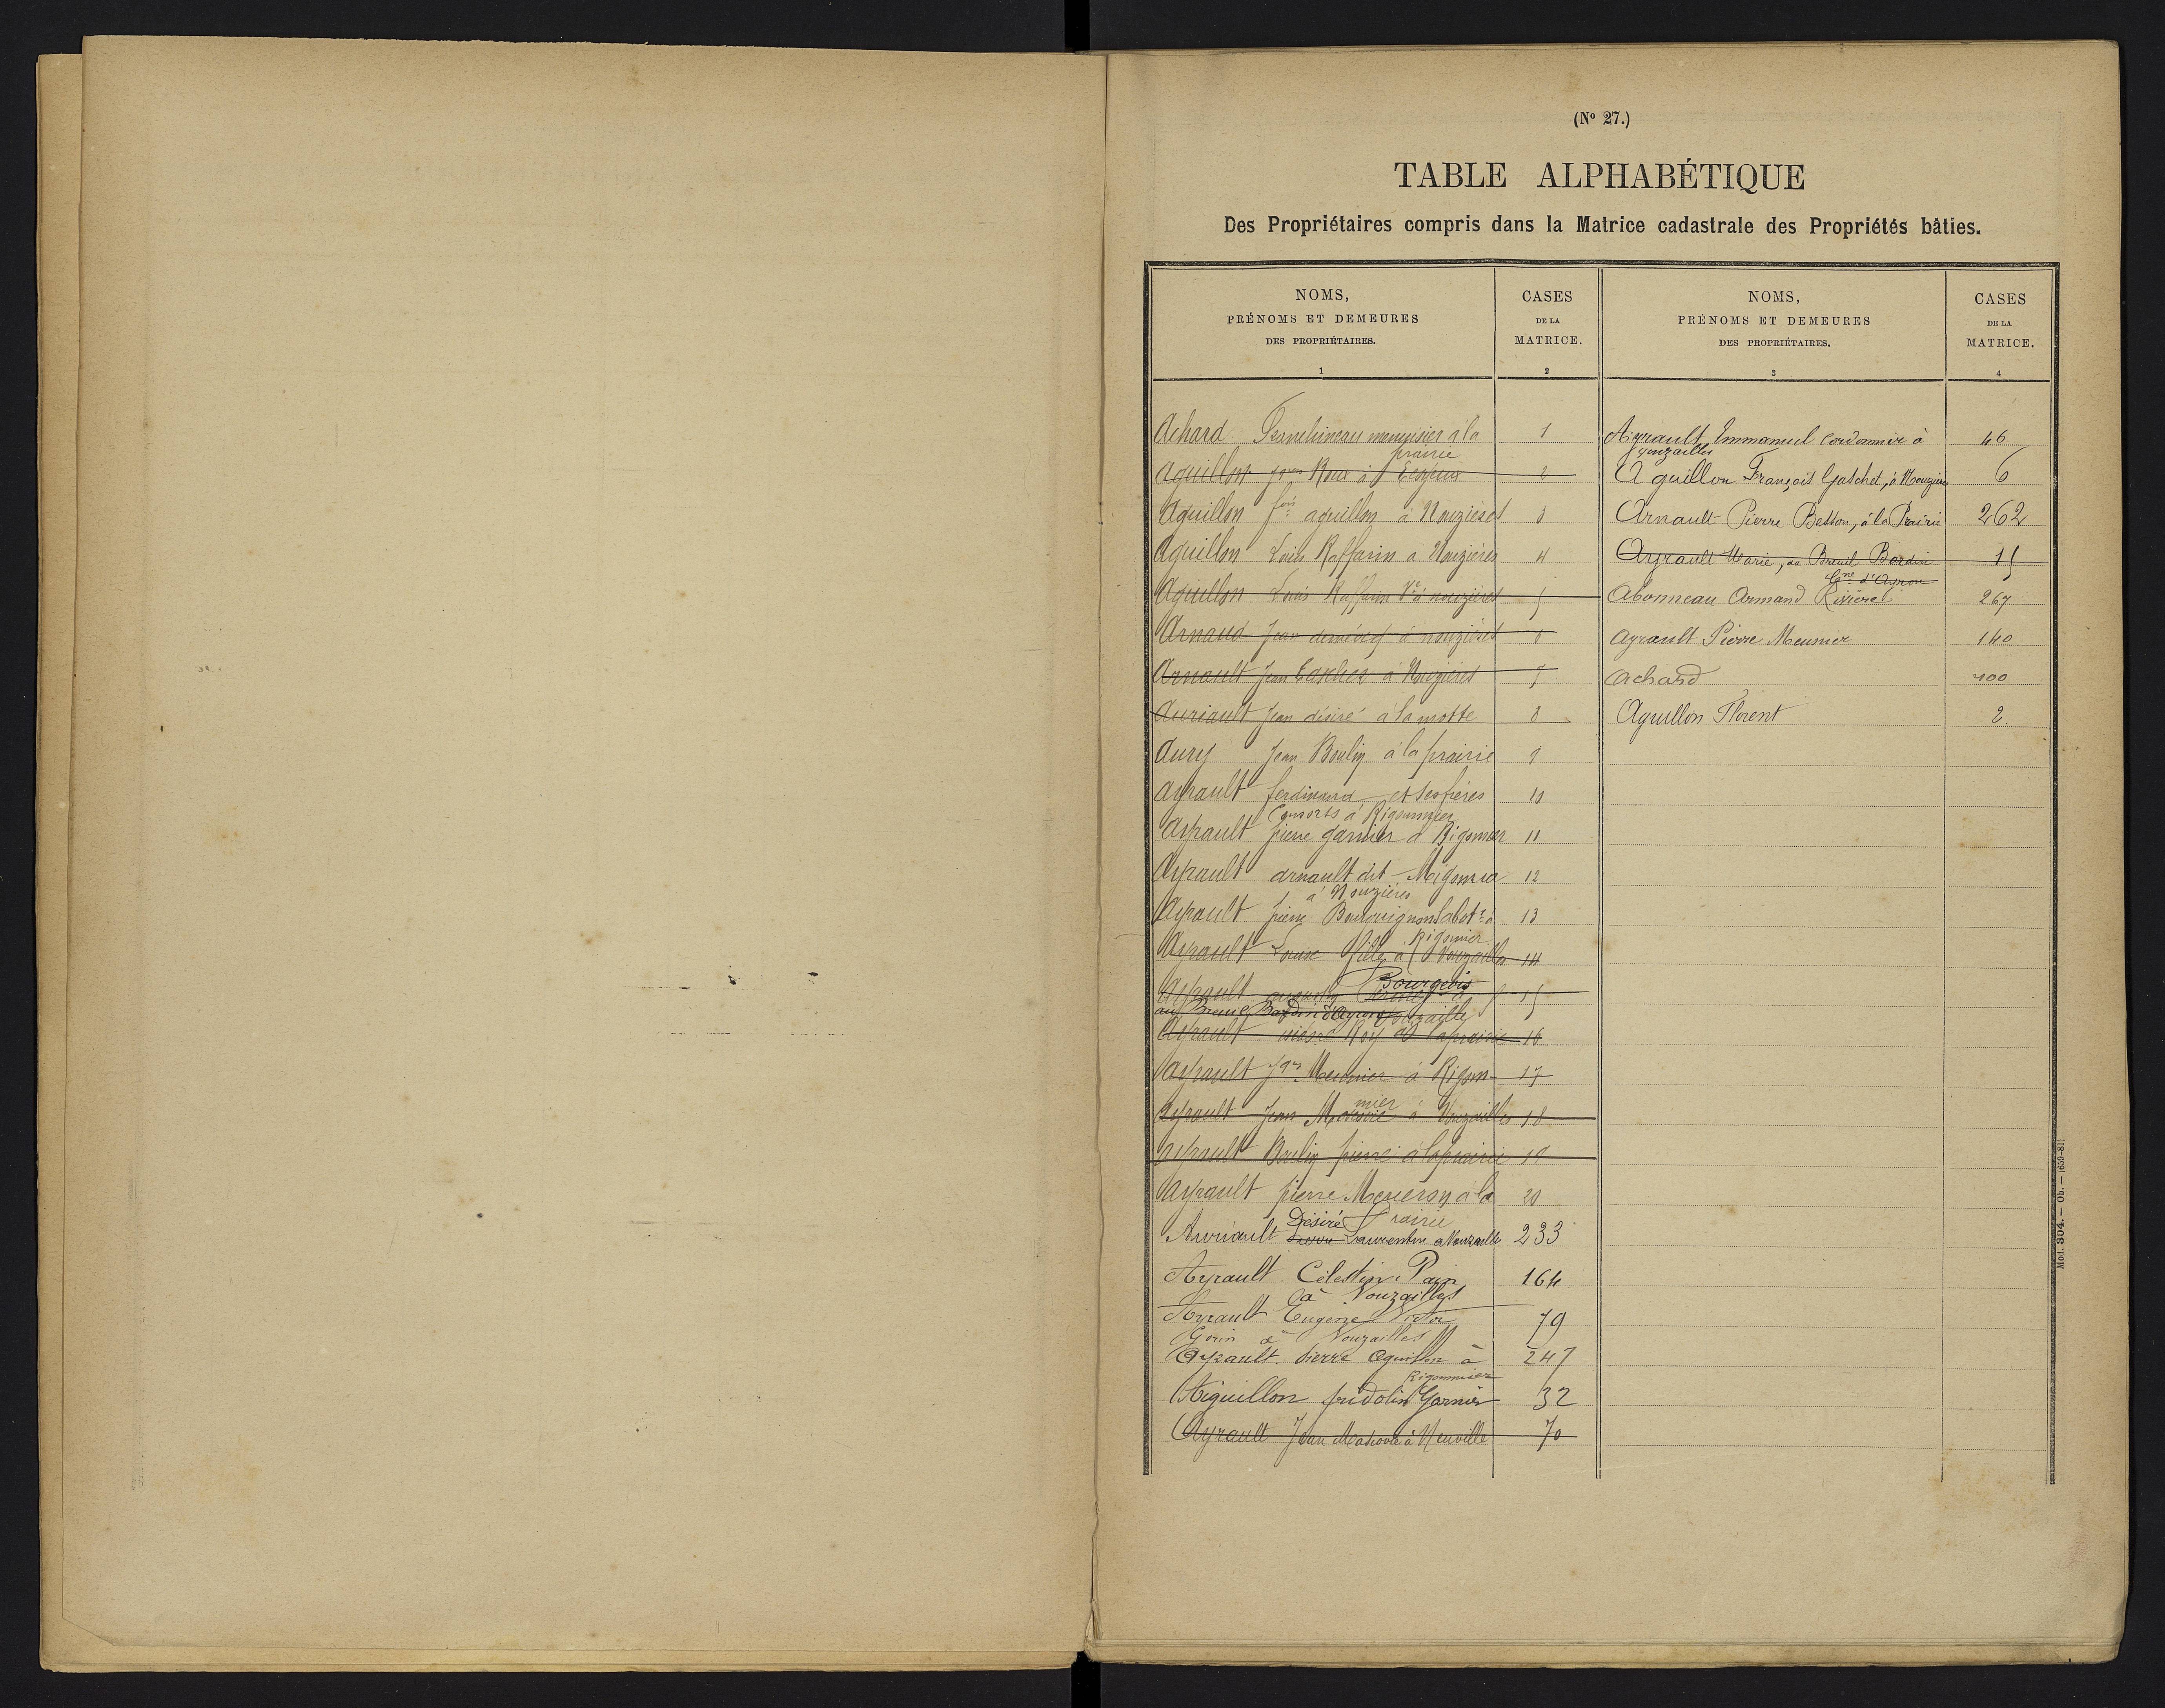 (Nº 27.)
TABLE ALPHABÉTIQUE
Des Propriétaires compris dans la Matrice cadastrale des Propriétés bâties.
NOMS,
PRÉNOMS ET DEMEURES
DES PROPRIÉTAIRES.
1
CASES
DE LA
MATRICE.
2
NOMS,
PRÉNOMS ET DEMEURES
DES PROPRIÉTAIRES.
3
CASES
DE LA
MATRICE.
4
Achard menuisier à la 1
prairie
Aguillon Roux à 2
Aguillon fois aguillon à Nouzières 3
Aguillon Louis Raffarin à Nouzières 4
Aguillon Louis Raffarin Ve à nouzières 5
Arnaud Jean à nouzières 6
Arnault Jean à Nouzières 7
Auriault Jean désiré à la motte 8
Aury Jean Boulin à la prairie 9
Ayrault ferdinand et ses frères 10
Consorts à Rigommier
Ayrault pierre garnier à Rigomier 11
Ayrault arnault dit 12
à Nouzières
Ayrault pierre Bourguignon Sabotr à 13
Rigomier
Ayrault Louise fille à Vouzailles 14
Ayrault Bourgeois 15
au Breuil Bardin d'Ayron Vouzailles
Ayrault Roy à la prairie 16
Ayrault Meunier à Rigom 17
mier
Ayrault Jean à Vouzailles 18
Ayrault Boulin pierre à la prairie 19
Ayrault pierre à la 20
Prairie
Désiré
Auriault Laurentin à Vouzaille 233
Ayrault Célestin Pain 164
à Vouzailles
Ayrault Eugène Victor 79
Gorin à Vouzailles
Ayrault Pierre Aguillon à 247
Rigommier
Aiguillon fridolin Garnier 32
Ayrault Jean à Neuville 70
Aigrault Emmanuel Cordonnier à 46
Vouzailles
Aguillon François Gatchet, à Nouzières 6
Arnault Pierre Betton, à la Prairie 262
Ayrault Marie, au Breuil Bardin 15
Cne d'Ayron
Abonneau Armand 267
Ayrault Pierre Meunier 140
Achard 100
Aguillon Florent 2
Mod. 304. — Ob. — (659-81)